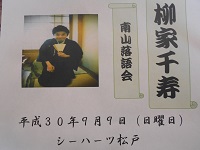 柳家千寿
南山落語会
平成３０年９月９日（日曜日）
シーハーツ松戸